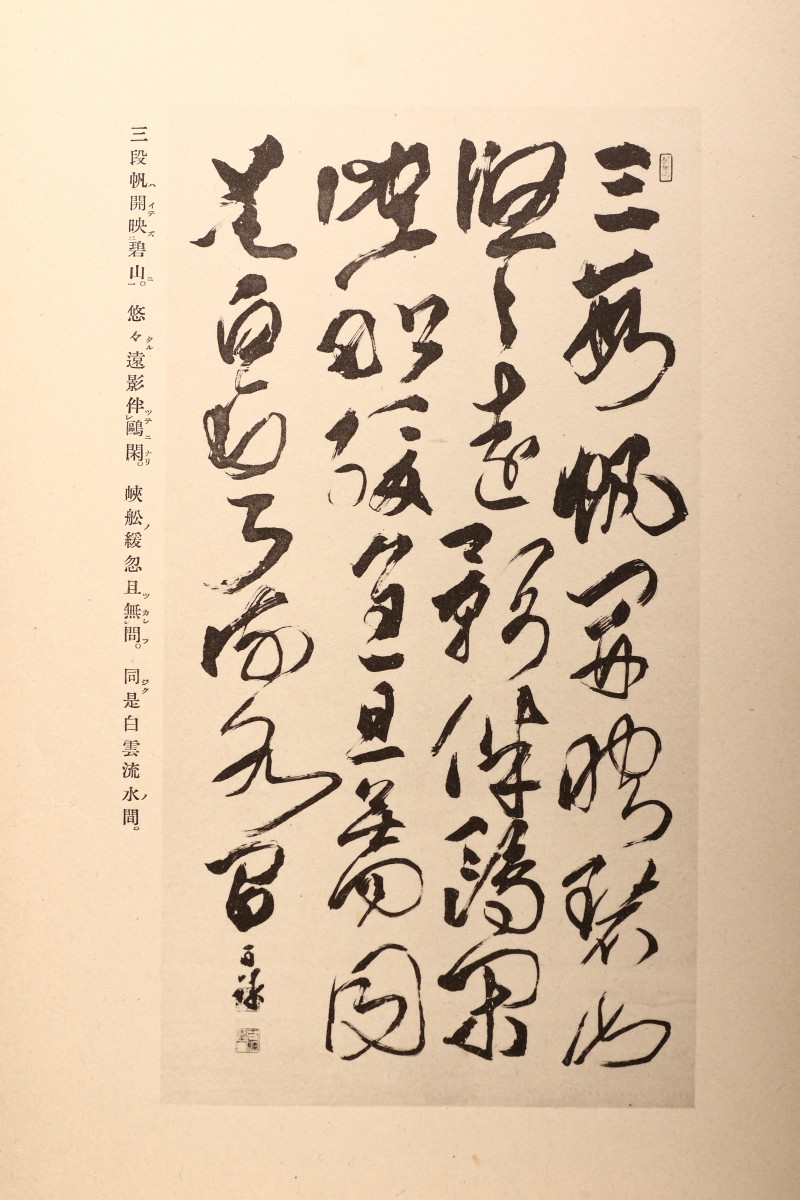 三段帆開映碧山
悠々遠影伴鷗閑
峽舩緩忽且無問同
是白雲流水間
三段帆開映碧山。悠々遠影伴鷗閑。峽舩緩忽且無問。同是白雲流水間。